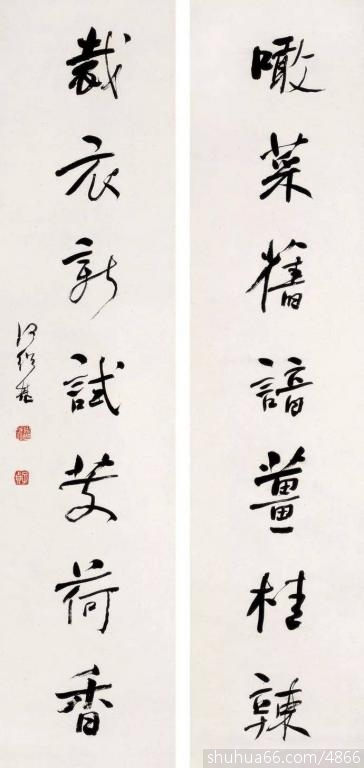 噉菜舊諳薑桂辣
裁衣新試芰荷香
何紹基
shuhua66.com/4866